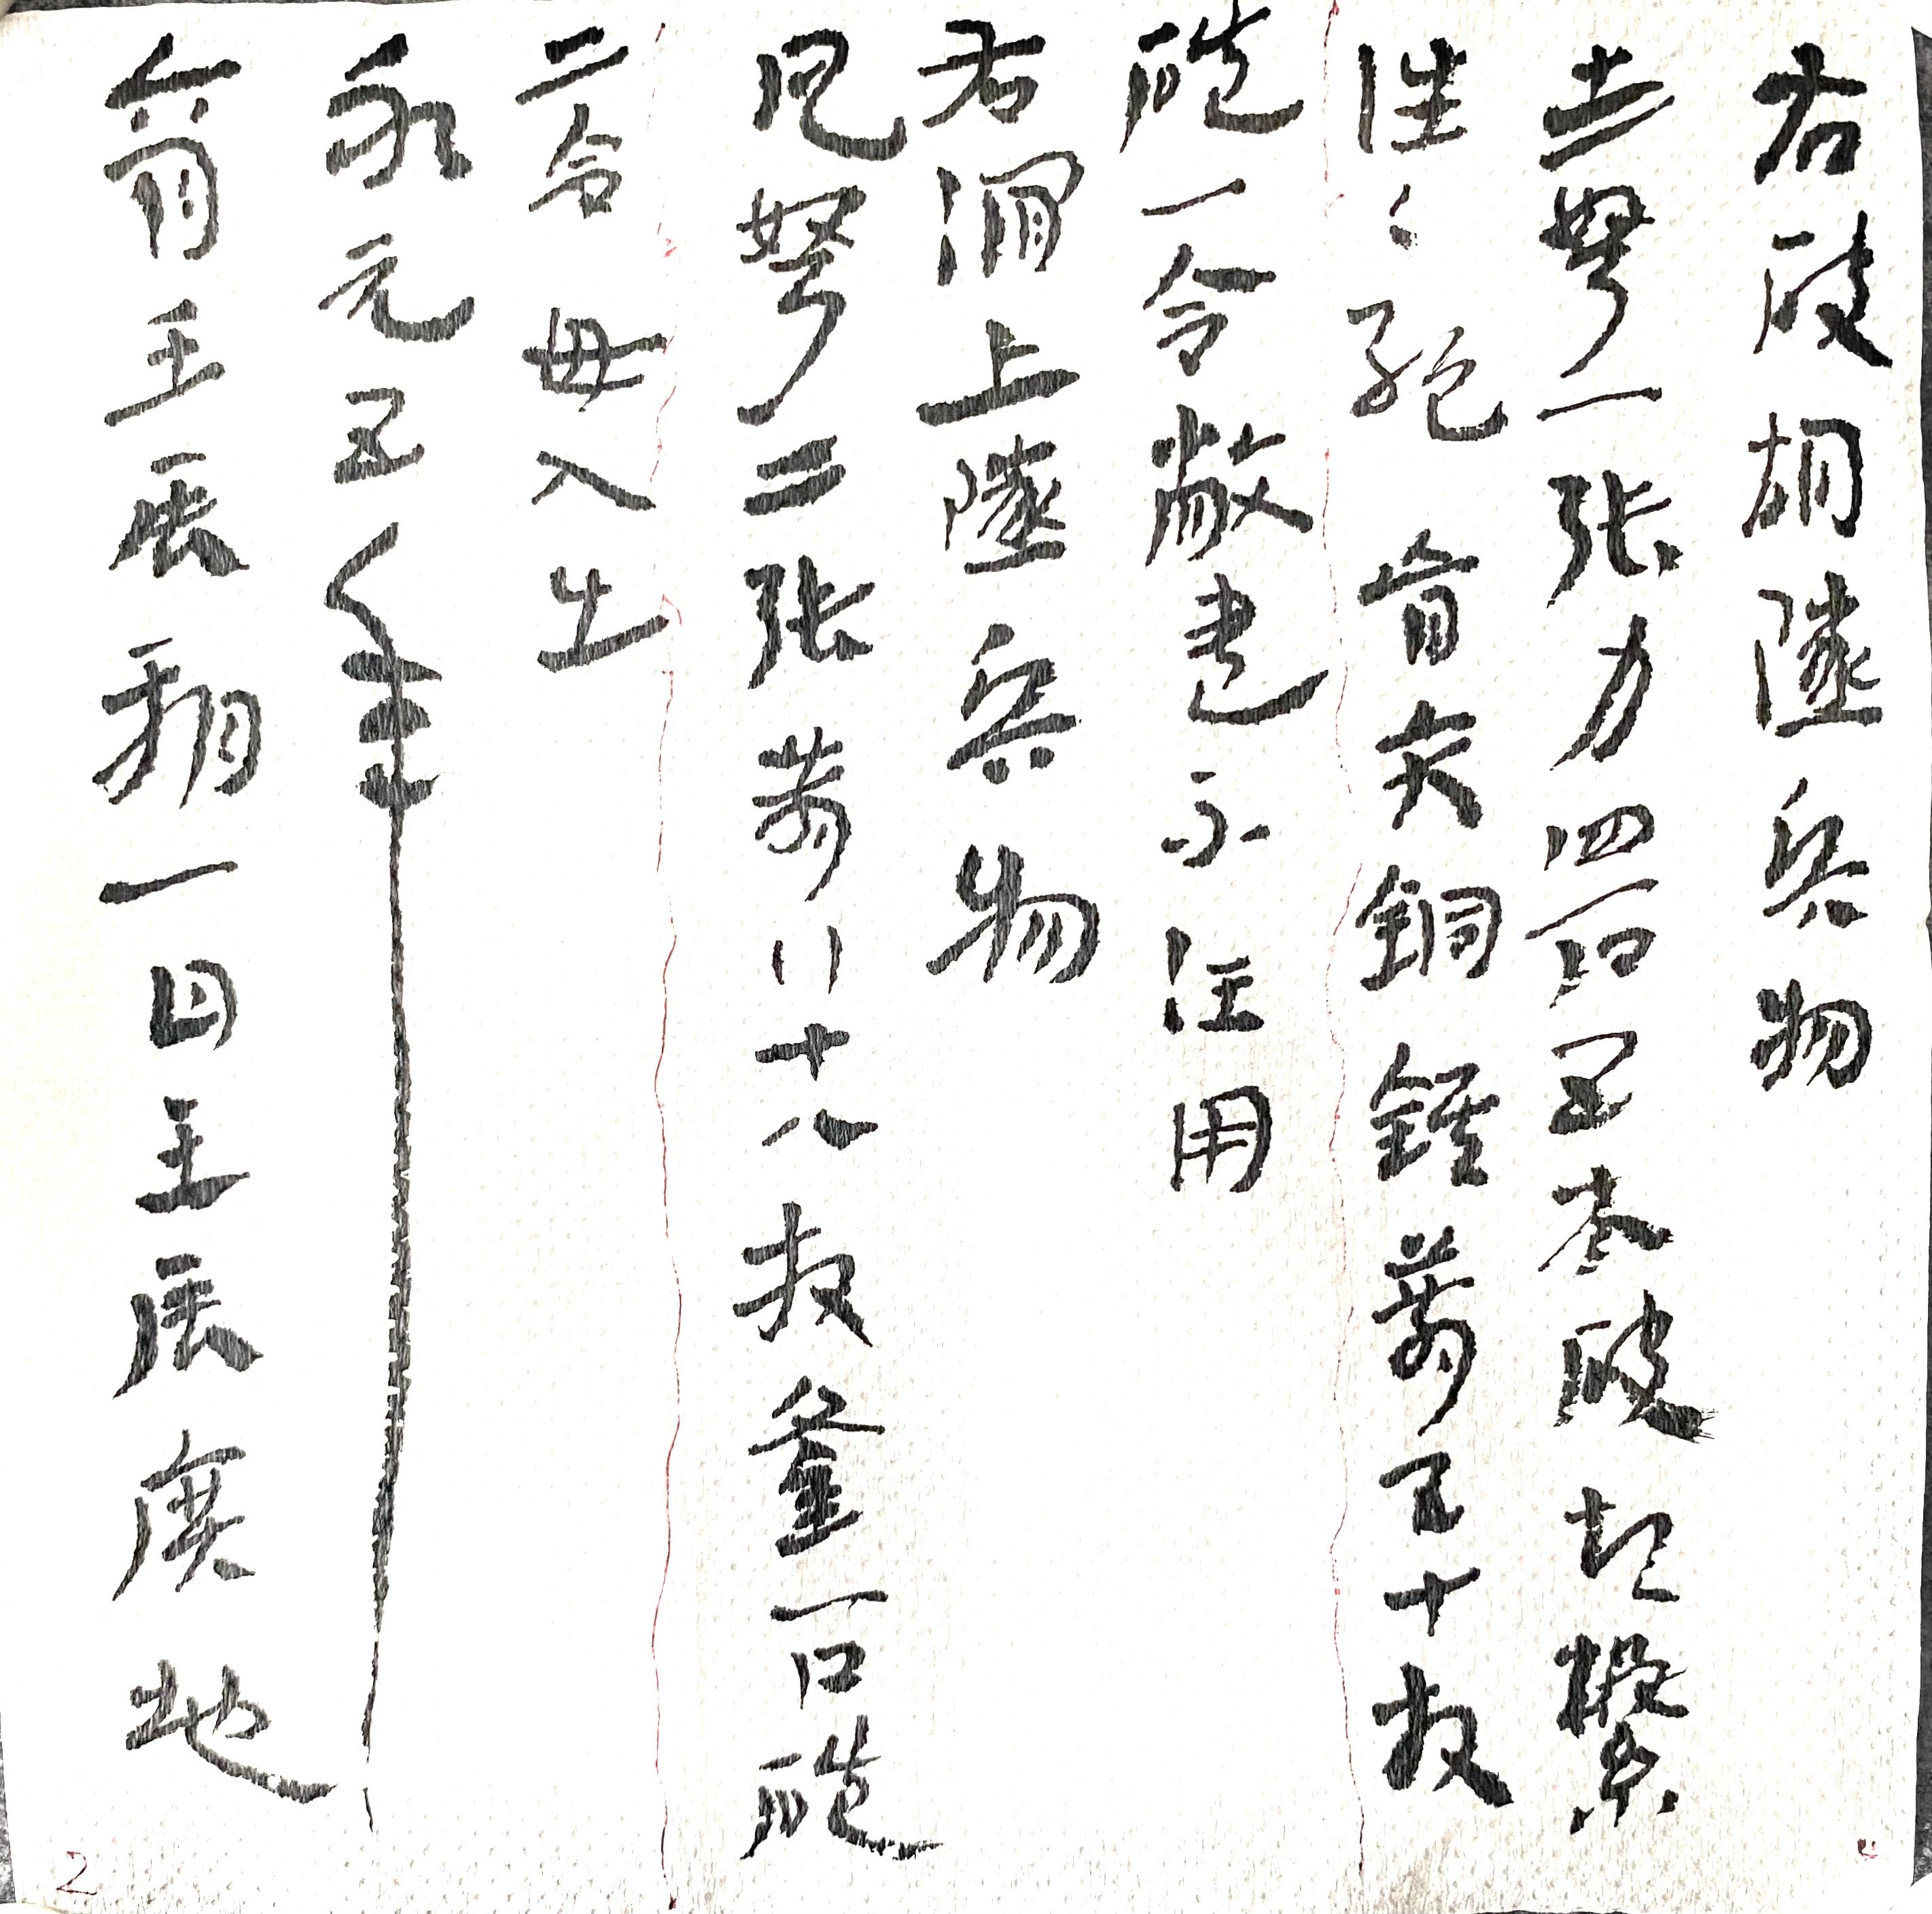 右破胡隧兵物
赤弩一張力四石五木破起繳
往々絶 盲矢銅鍭箭五十枚
磑一合敝盡不任用
右澗上隧兵物
凡弩二張箭八十八枚釜一口磑
二合 毋入出
永元五年
六月壬辰朔一日壬辰廣地
2